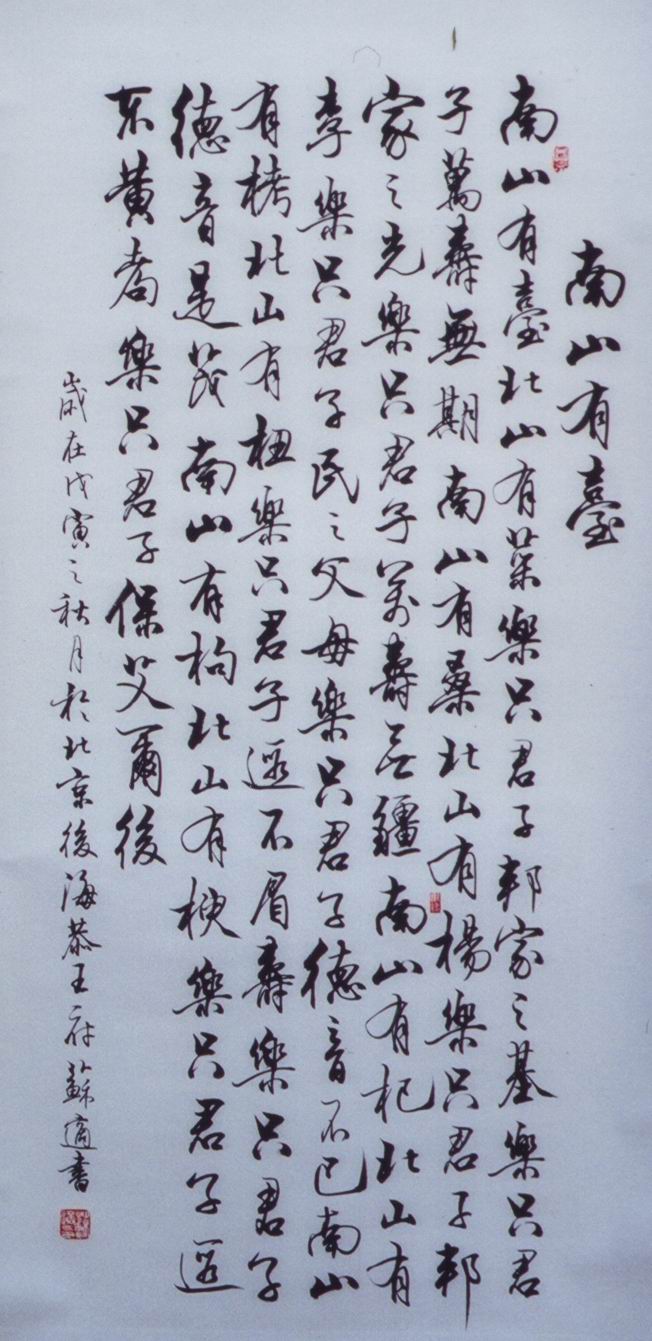 南山有臺
南山有臺北山有萊樂只君子邦家之基樂只君
子萬壽無期南山有桑北山有楊樂只君子邦
家之光樂只君子萬壽无疆南山有杞北山有
李樂只君子民之父母樂只君子德音不已南山
有栲北山有杻樂只君子遐不眉壽樂只君子
德音是茂南山有枸北山有楰樂只君子遐
不黃耇樂只君子保艾爾後
歲在戊寅之秋月於北京後海恭王府蘇適書